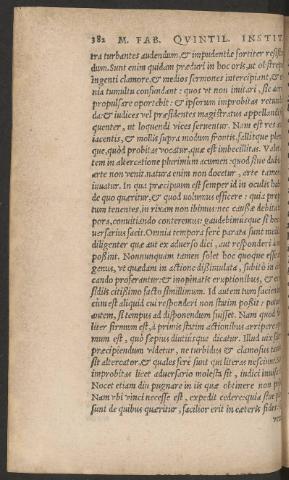 382 M. FAB. QVINTIL. INSTIT.
tra turbantes audendum, & impudentiæ fortiter resist
dum. Sunt enim quidam præduri in hoc oris, ut obstrep
ingenti clamore, & medios sermones intercipiant, &
nia tumultu confundant: quos ut non imitari, sic
propulsare oportebit: & ipsorum improbitas retun
da: & iudices vel præsidentes magistratus appellandi
quenter, ut loquendi vices serventur. Nam est res
iacentis, & mollis supra modum frontis, fallitque
que, quòd probitas vocatur, quæ est imbecillitas.
tem in altercatione plurimum acumen: quod sine dubio
arte non venit: natura enim non docetur, arte tamen
iuvatur. In qua præcipuum est semper id in oculis hab
de quo quæritur, & quod volumus efficere: quia prop
tum tenentes, in rixam non ibimus: nec causæ debita
pora, convitiando conteremus: gaudebimusque si hoc
versarius facit. Omnia tempora ferè parata sunt
diligenter quæ aut ex adverso dici, aut responderi à
possint. Nonnunquam tamen solet hoc quoque esse
genus, ut quædam in actione dissimulata, subitò in
cando proferantur: & inopinatis eruptionibus, &
sidiis citissimo facto simillimum. Id autem tum faciend
cùm est aliquid cui responderi non statim possit: potu
autem, si tempus ad disponendum fuisset. Nam quod
liter firmum est, à primis statim actionibus arripere
mum est, quò sæpius diutiusque dicatur. Illud vix
præcipiendum videtur, ne turbidus & clamosus tan
sit altercator. & quales ferè sunt qui literas nesciunt.
improbitas licet adversario molesta sit, iudici invisa
Nocet etiam diu pugnare in iis quæ obtinere non
Nam ubi vinci necesse est, expedit cedere: quia
sunt de quibus quæritur, facilior erit in cæteris fides